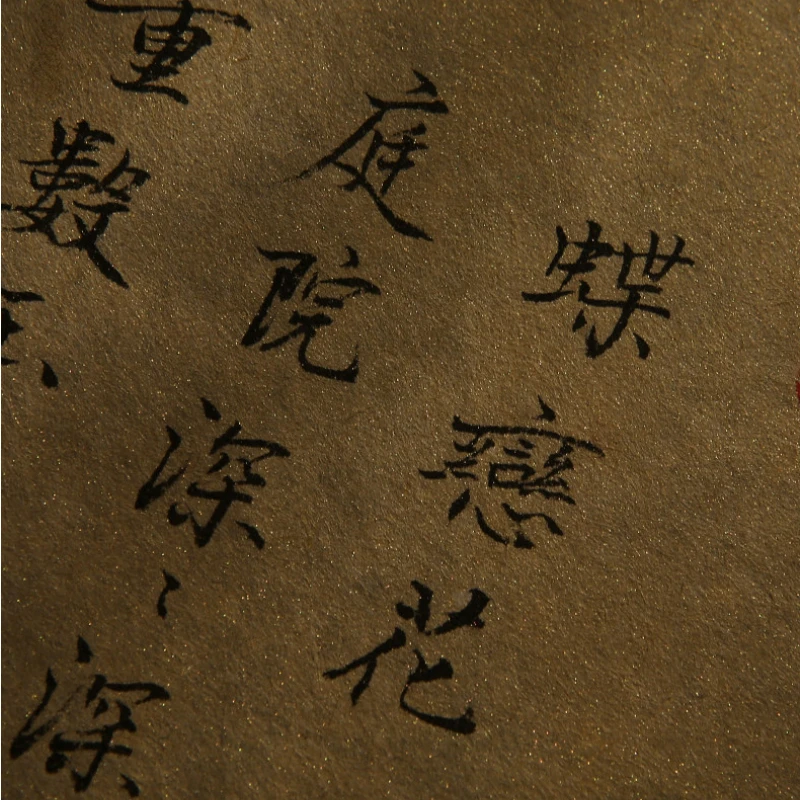 蝶戀花
庭院深〻深
重數